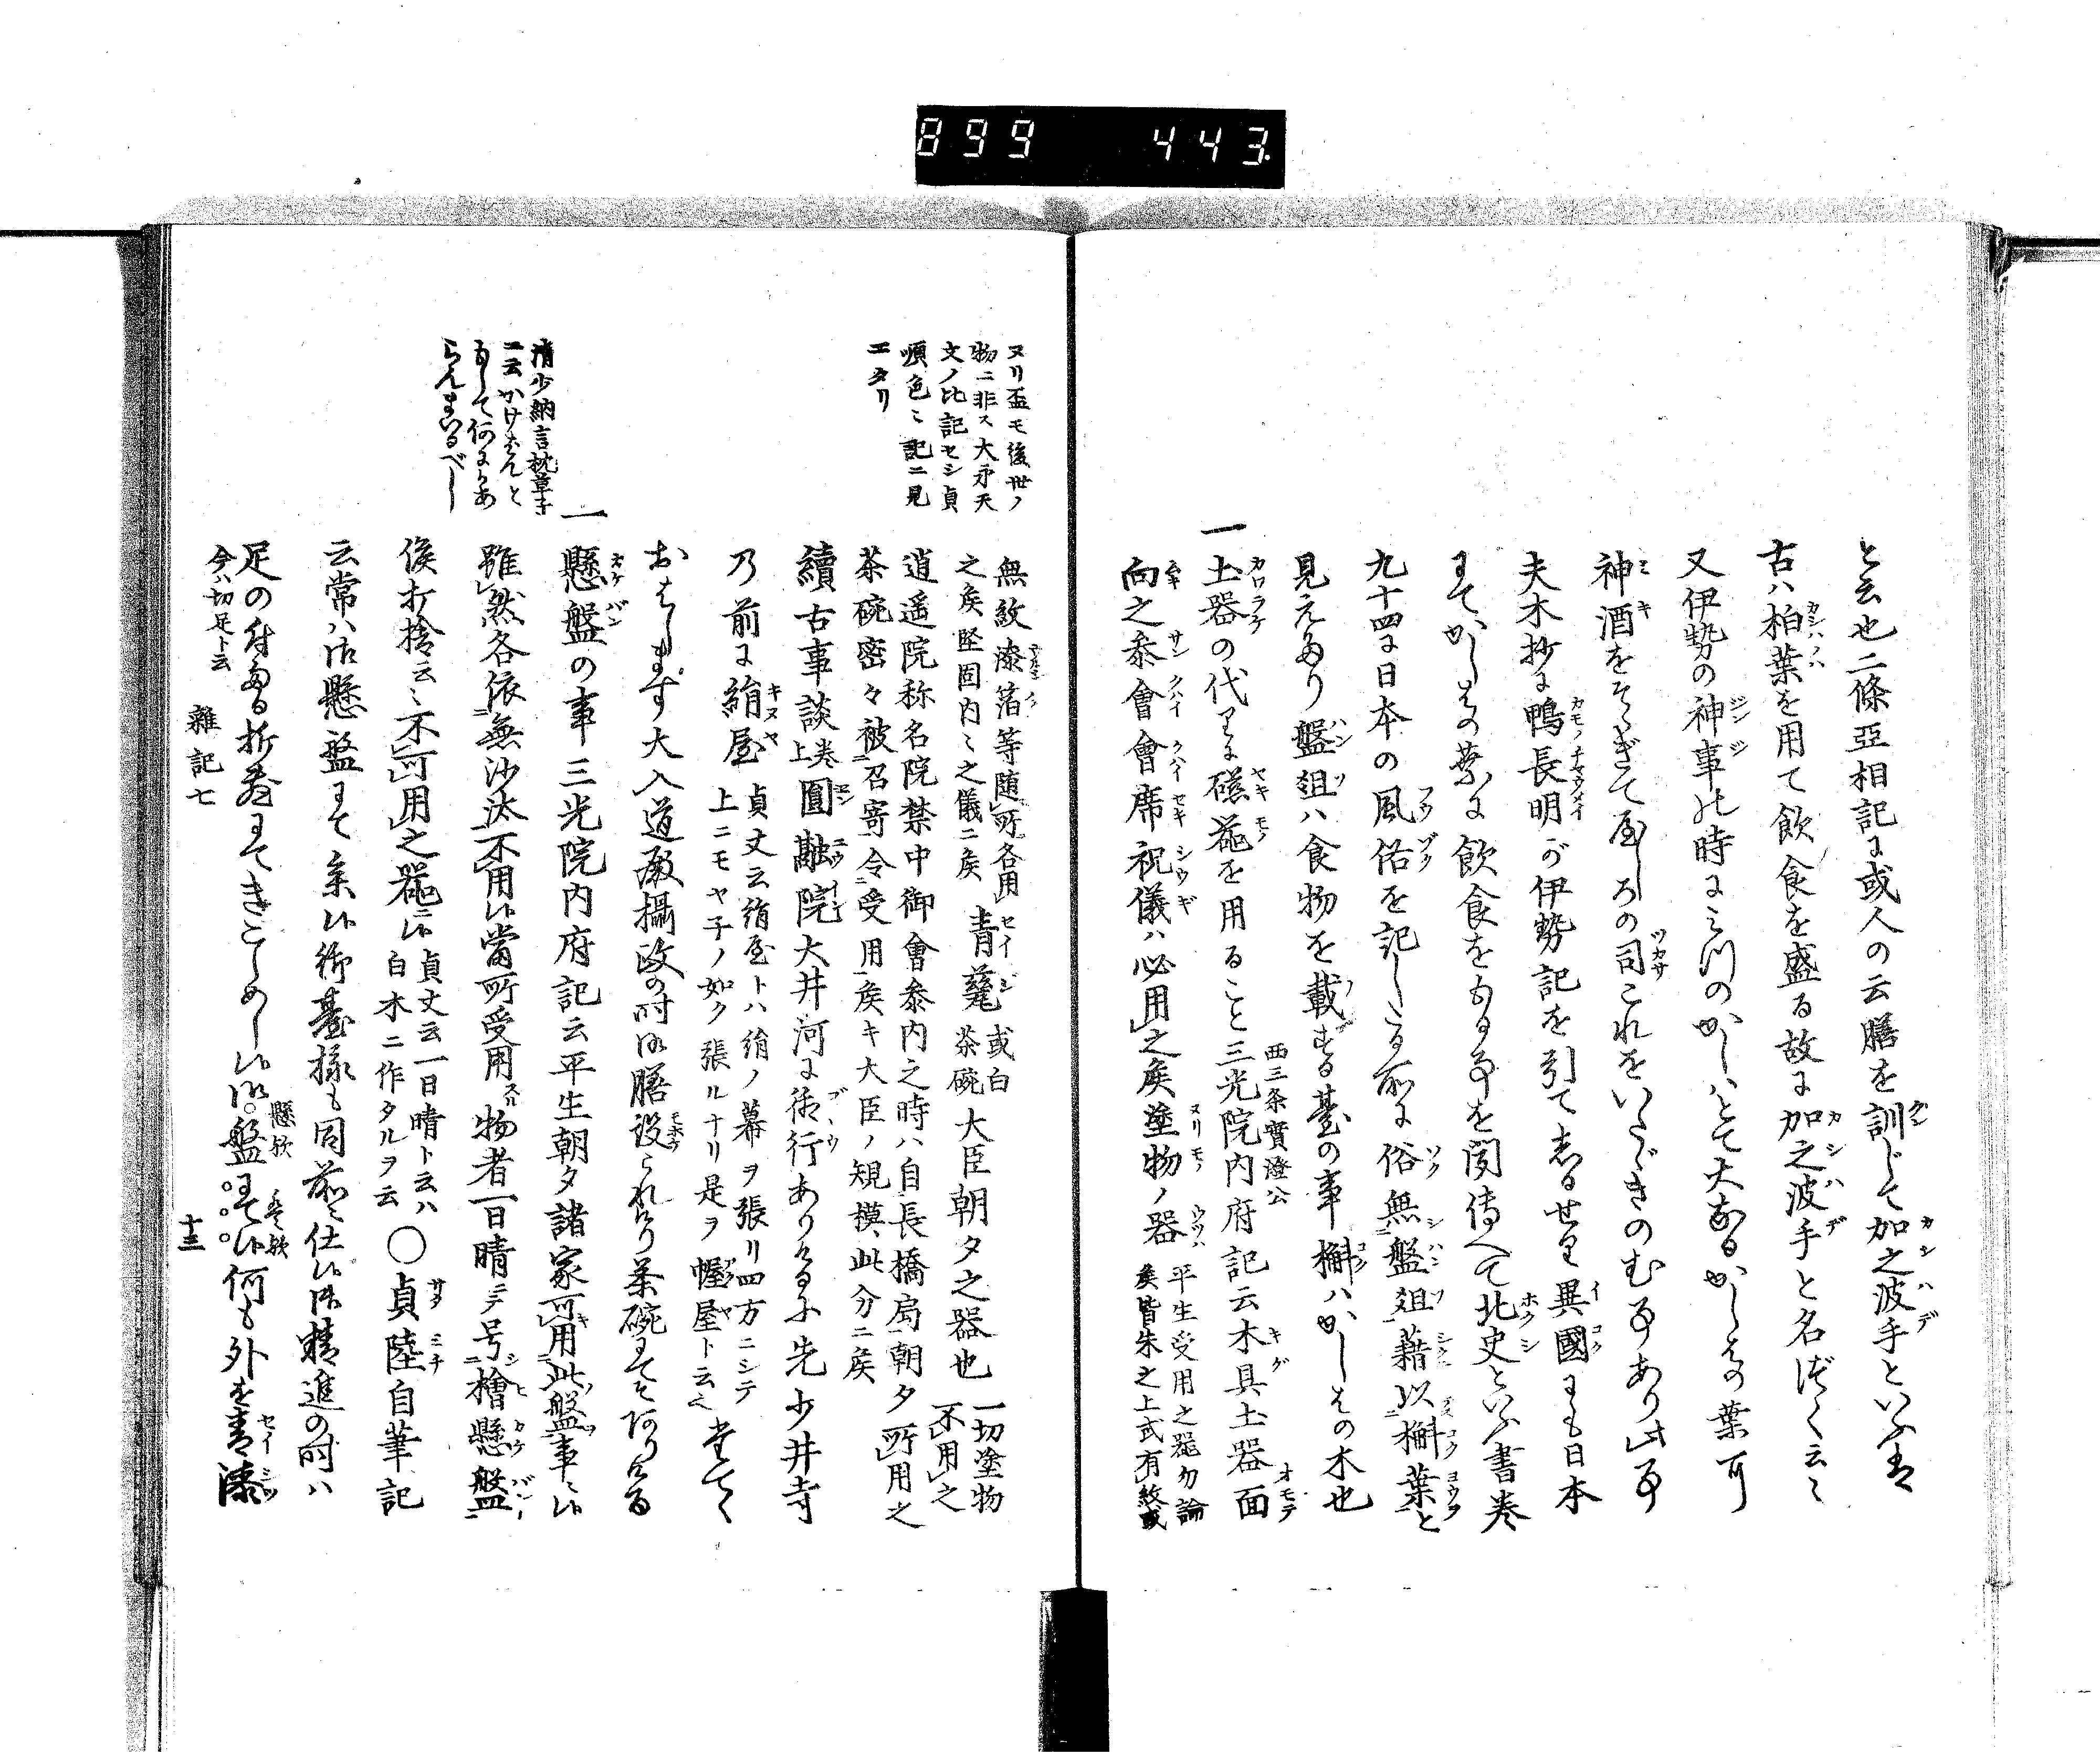 899 443.
と云也二條亞相記に或人の云膳を訓じて加之波手といふは
古ハ柏葉を用て飲食を盛る故に加之波手と名づく云々
又伊勢の神事の時にみつのかしハとて大なるかしはの葉可
神酒をそゝぎて屋しろの司これをいたゞきのむ事あり此事
夫木抄に鴨長明が伊勢記を引て志るせり異國にも日本
にてかしはの葉に飲食をもる事を聞傳へて北史といふ書巻
九十四に日本の風俗を記したる所に俗無盤爼藉以檞葉と
見えたり盤爼ハ食物を載する臺の事檞ハかしはの木也
一土器の代りに礠器を用ること三光院内府記云木具土器面
西三条實澄公
向之叅會會席祝儀ハ必用之矦塗物ノ器
平生受用之器勿論
矦皆朱之上或有紋或
ヌリ盃モ後世ノ
物ニ非ス大永天
文ノ比記セシ貞
順色々記ニ見
エタリ
無紋漆箔等随所各用
之矦堅固内々之儀ニ矦
青甆
或白
茶碗
大臣朝夕之器也
一切塗物
不用之
逍遥院称名院禁中御會叅内之時ハ自長橋局朝夕所用之
茶碗密々被召寄令受用矦キ大臣ノ規模此分ニ矦
續古事談上巻圓融院大井河に御行ありけるに先少井寺
乃前に絹屋
貞丈云絹屋トハ絹ノ幕ヲ張リ四方ニシテ
上ニモヤ子ノ如ク張ルナリ是ヲ幄屋ト云
たてゝ
おはします大入道殿攝政の時御膳設られけり茶碗にてそありける
清少納言枕草子
ニ云かけばんと
して何にかあ
らんまいるべし
一懸盤の事三光院内府記云平生朝夕諸家可用此盤事ニ候
雖然各依無沙汰不用候當所受用物者一日晴ニテ号檜懸盤
侯打捨云々不可用之器ニ候
貞丈云一日晴ト云ハ
白木ニ作タルヲ云
〇貞陸自筆記
云常ハ御懸盤にて参候御臺様も同前ニ仕候御精進の時ハ
足の付たる折敷にてきこしめし候御盤にて候何も外を青漆
懸歟
今ハ切足ト云
雜記七
十三